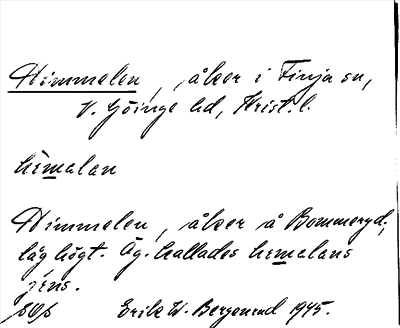 Himmelen, åker i Finja sn,
V. Göinge hd, Krist. l.
hìmalan
Himmelen, åker å Bommeryd;
låg högt. Äg. kallades himalans
jéns.
Erik W. Bergenrud 1945.